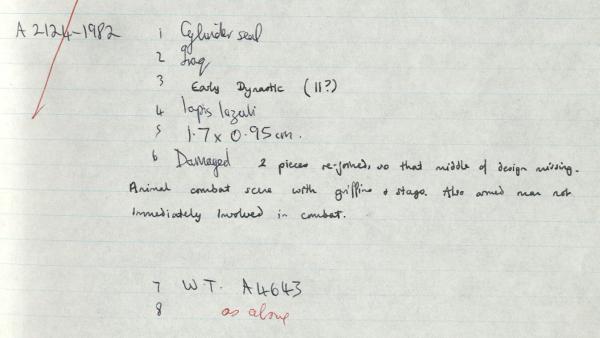 A 2124-1982 1 Cylinder seal
2 Iraq
3 Early Dynastic (II?)
4 lapis lazuli
5 1.7 x 0.95 cm.
6 Damaged 2 pieces re-joined, so that middle of design missing.
Animal combat scene with griffins & stags. Also armed man not
immediately involved in combat.
7 W.T. A4643
8 as above